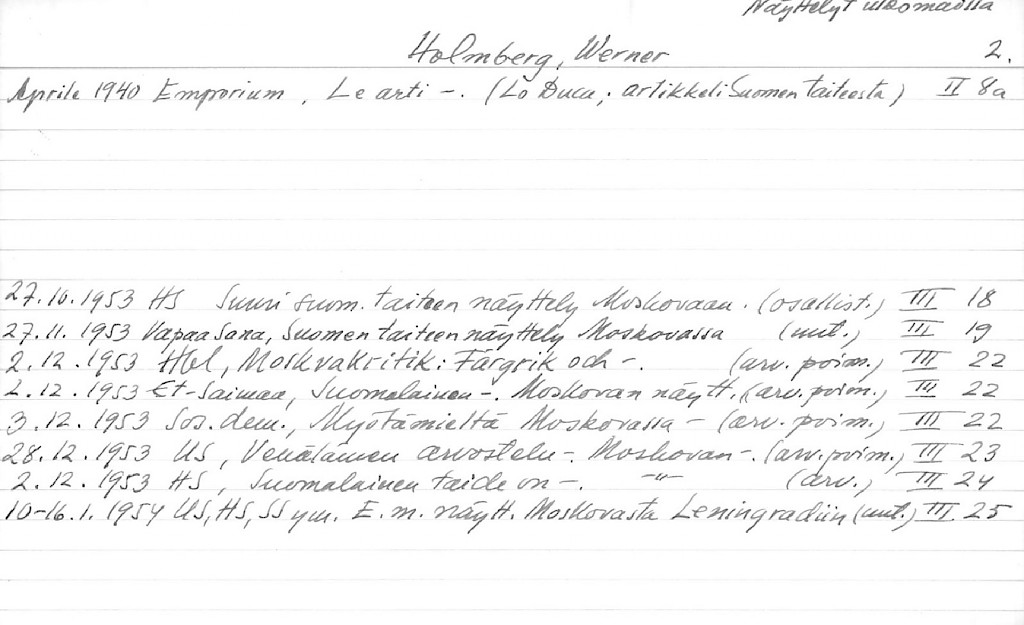 Näyttelyt ulkomailla
Holmberg, Werner 2.
Aprile 1940 Emporium, Le arti -. (Lo Duca; artikkeli Suomen taiteesta) II 8a
27.10.1953 HS Suuri suom. taiteen näyttely Moskovaan. (osallist.) III 18
27.11.1953 Vapaa Sana, Suomen taiteen näyttely Moskovassa (uut.) III 19
2.12.1953 Hbl, Moskvakritik: Färgrik och -. (arv. poim.) III 22
2.12.1953 Et-Saimaa, Suomalainen -. Moskovan näytt. (arv. poim.) III 22
3.12.1953 Sos.dem., Myötämieltä Moskovassa - (arv. poim.) III 22
28.12.1953 US, Venäläinen arvostelu -. Moskovan -. (arv. poim.) III 23
2.12.1953 HS, Suomalainen taide on -. -"- (arv.) III 24
10-16.1.1954 US, HS, SS ym. E.m. näytt. Moskovasta Leningradiin (uut.) III 25